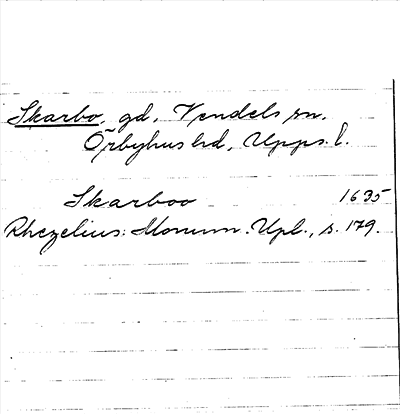 Skarbo, gd, Vendels sn.
Örbyhus hd, Upps. l.
Skarboo 1635
Rhezelius: Monum. Upl., s. 179.